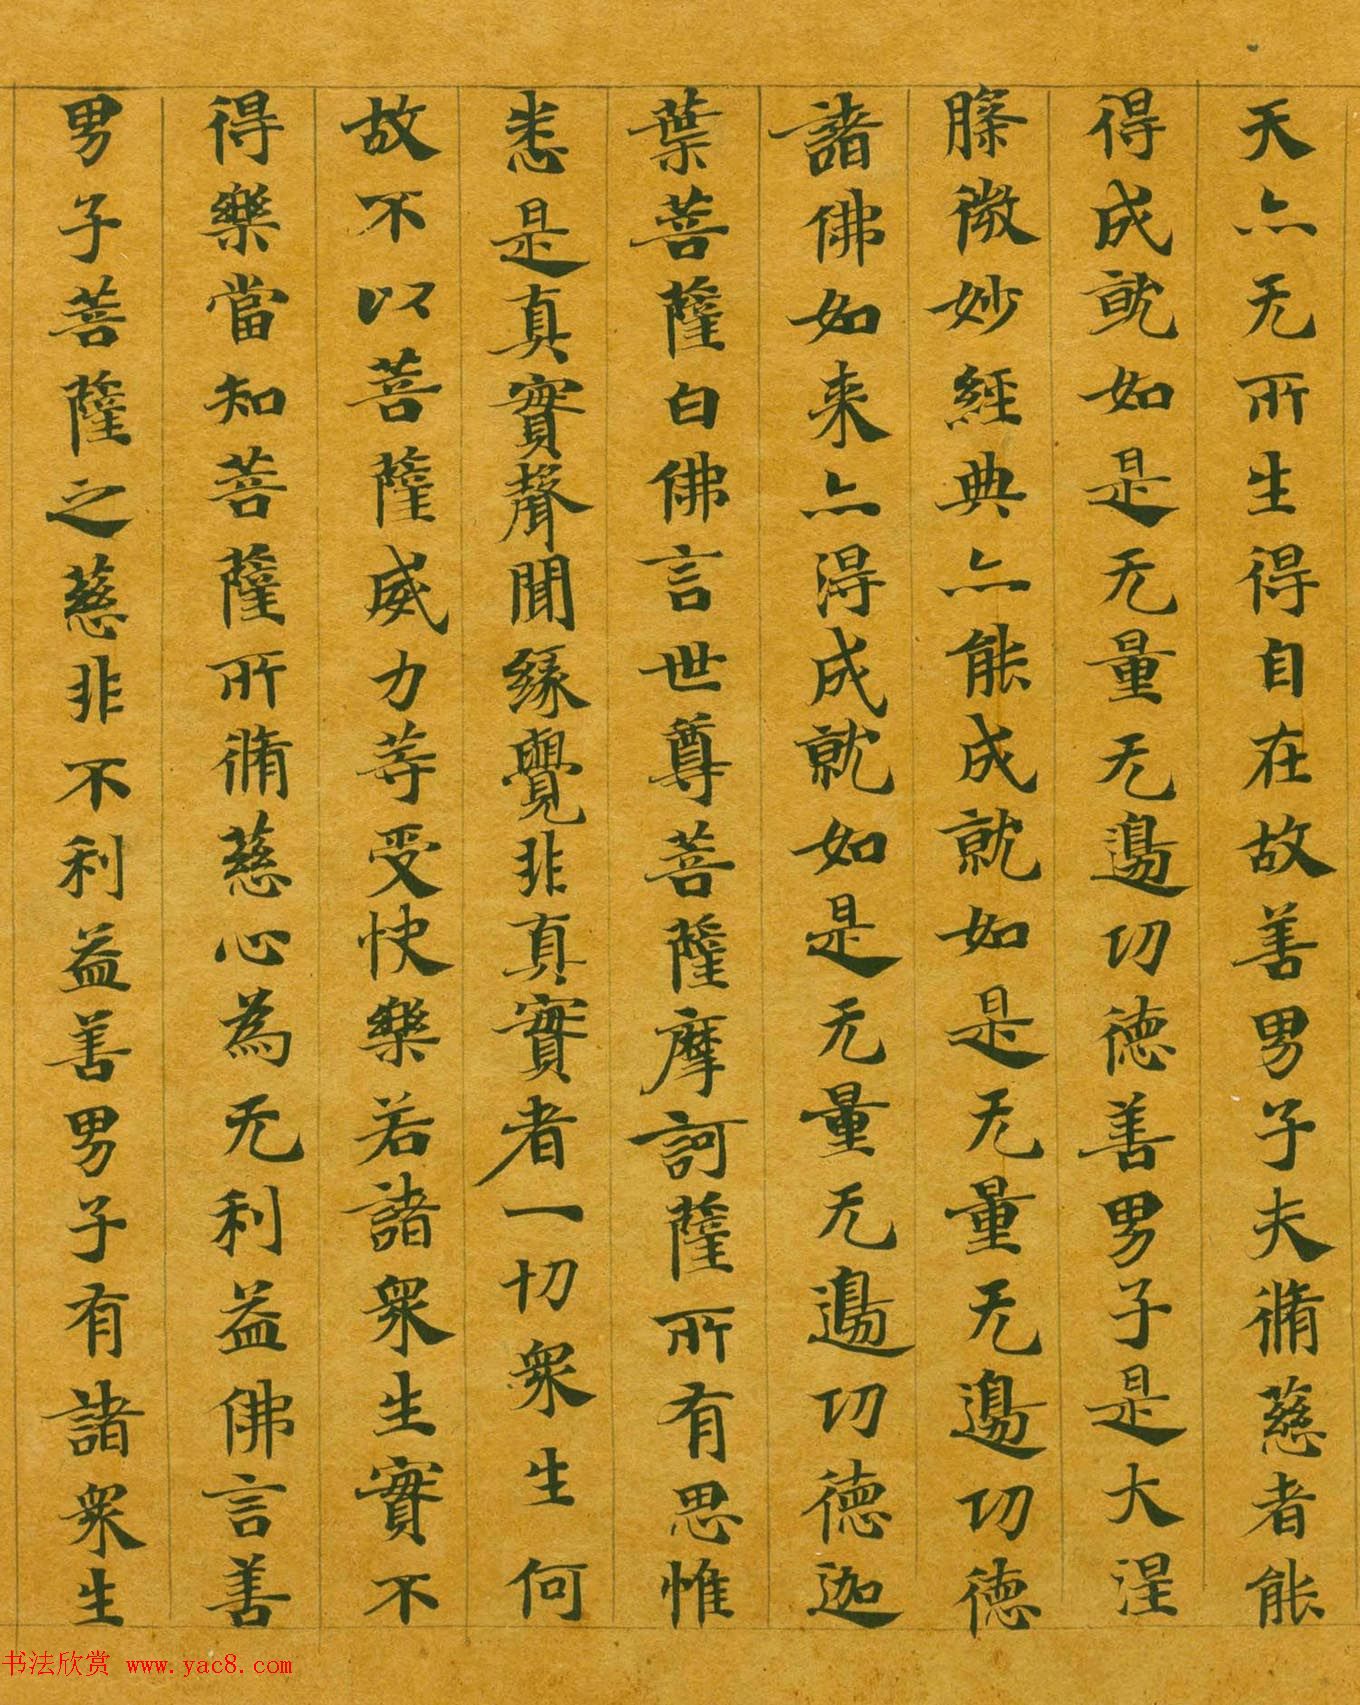 天亦无所生得自在故善男子夫脩慈者能
得成就如是无量无邊功德善男子是大涅
槃微妙經典亦能成就如是无量无邊功德
諸佛如来亦得成就如是无量无邊功德迦
葉菩薩白佛言世尊菩薩摩訶薩所有思惟
悉是真實聲聞緣覺非真實者一切衆生何
故不以菩薩威力等受快樂若諸衆生實不
得樂當知菩薩所脩慈心為无利益佛言善
男子菩薩之慈非不利益善男子有諸衆生
书法欣赏 www.yac8.com